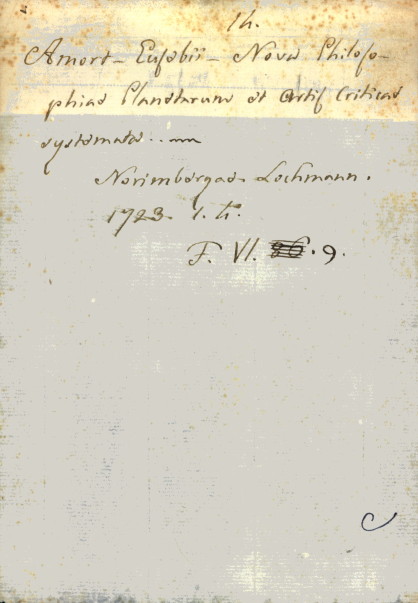 14.
Amort - Eusebii - Nova Philoso-
phiae Planetarum et Artis Criticae
systemata...
Norimbergae - Lochmann.
1723. 1. K.
F. VI. 9.